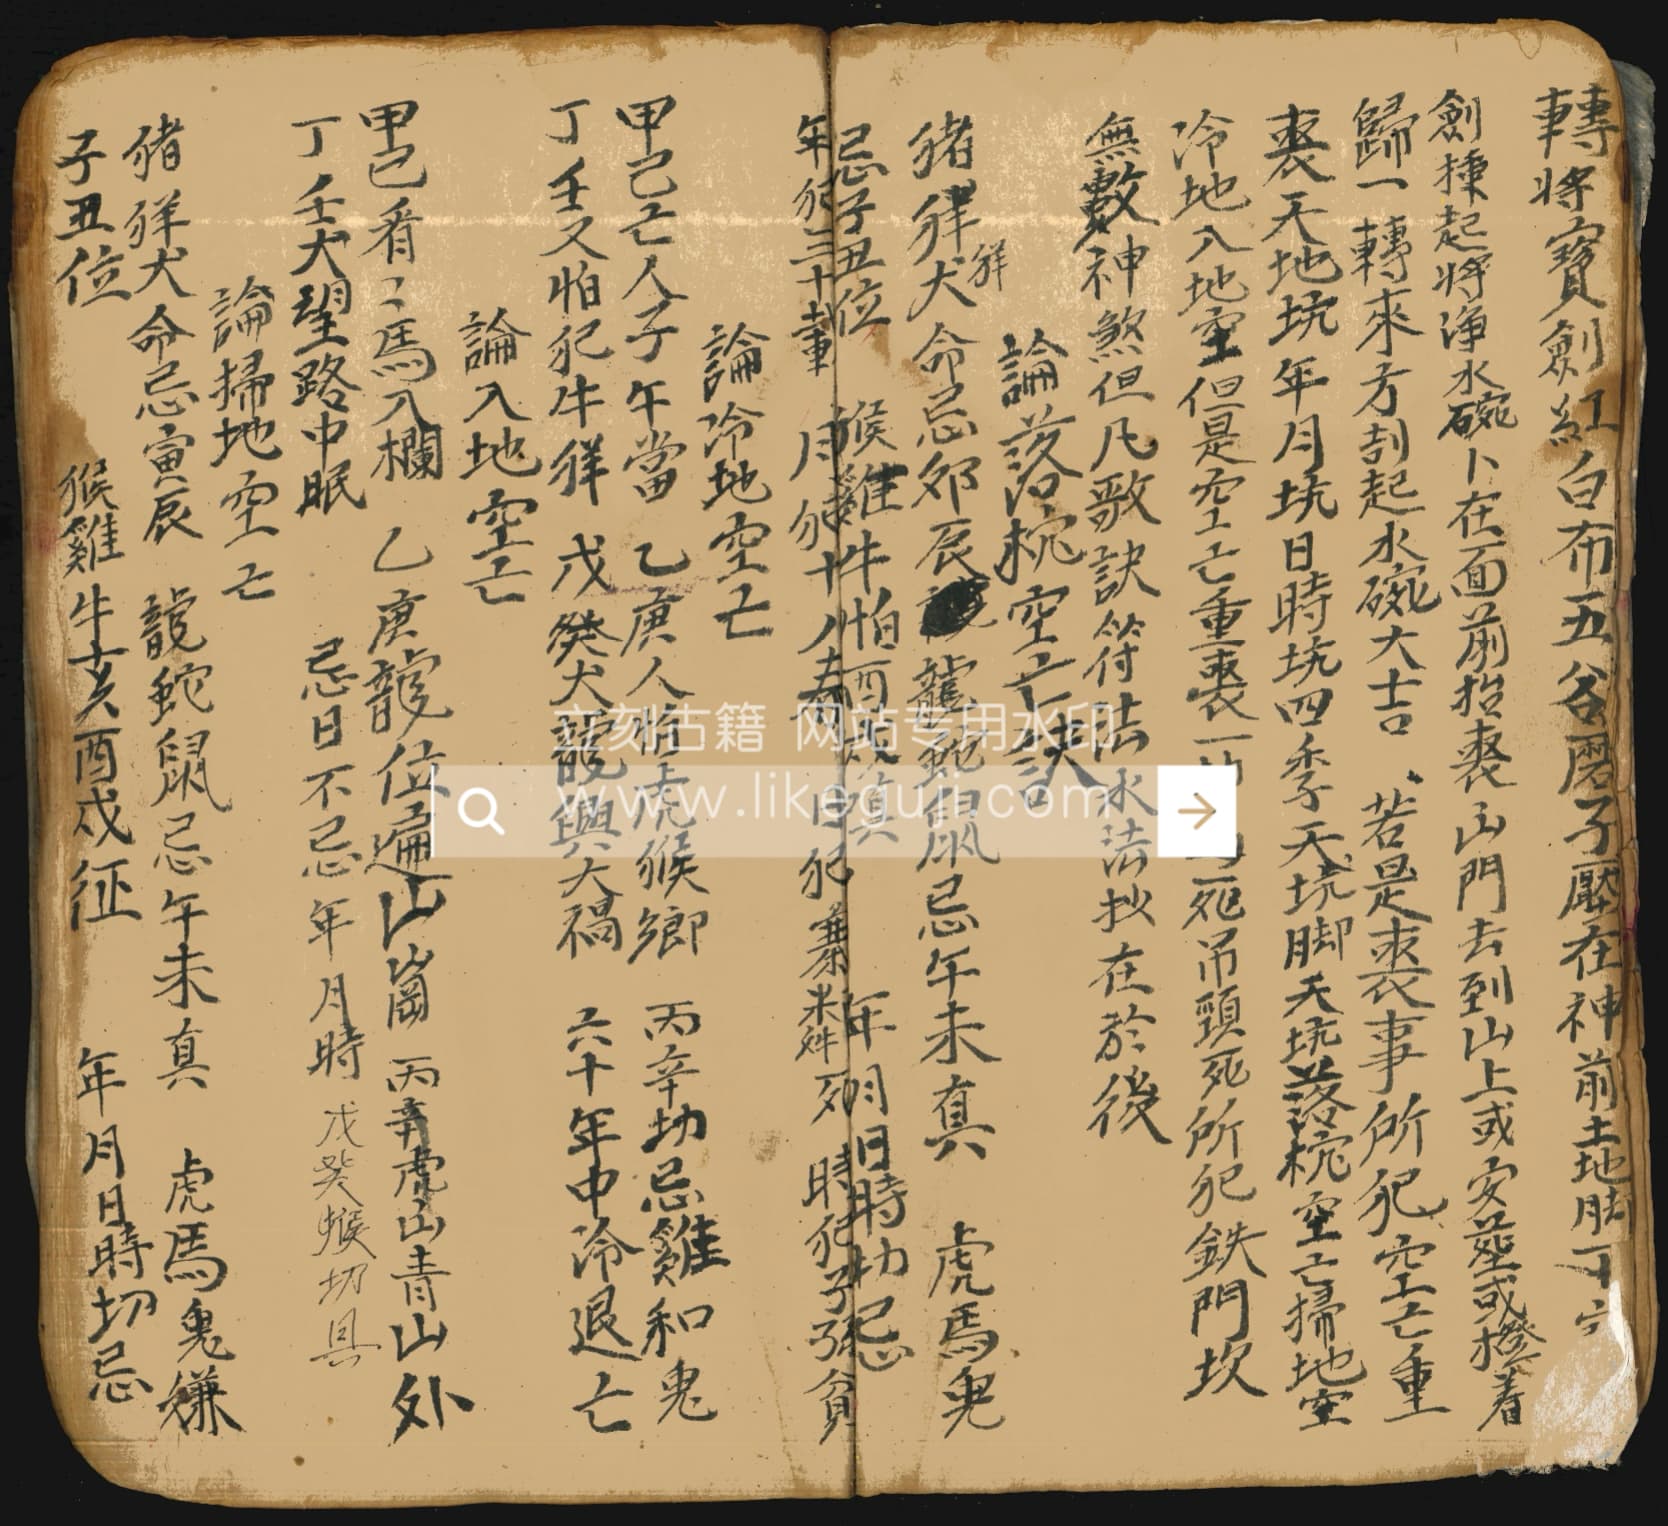 轉將寳劍紅白布五谷磨子壓在神前土地脚下
劍捶起將浄水碗卜在面前抬喪山門去到山上或安莝或撜着
歸一轉來方刮起水碗大吉 若是喪事所犯空亡重
喪天地坑年月坑日時坑四季天坑脚天坑落枕空亡掃地空
冷地入地空但是空亡重喪一 死吊頸死所犯鉄門坎
無數神煞但凡歌訣符法水法抄在於後
論落枕空亡訣
猪羊犬命忌卯辰 龍蛇鼠忌午未真 虎馬兔
羊
忌子丑位 猴雞牛怕酉戍真 年月日時切忌
年犯三十輩 月犯十人 日犯 米 死 時犯子孫貧
論冷地空亡
甲己亡人子午當 乙庚人怕虎猴鄉 丙辛切忌雞和兔
丁壬又怕犯牛羊 戊癸犬龍興大禍 六十年中冷退亡
論入地空亡
甲己看々馬入欄 乙庚龍位遍山崗 丙辛虎山青山外
丁壬犬望路中眠 忌日不忌年月時 戊癸猴切具
論掃地空亡
猪羊犬命忌寅辰 龍蛇鼠忌午未真 虎馬兔嫌
子丑位 猴雞牛亥酉戍征 年月日時切忌
立刻古籍 网站专用水印
www.likeguji.com